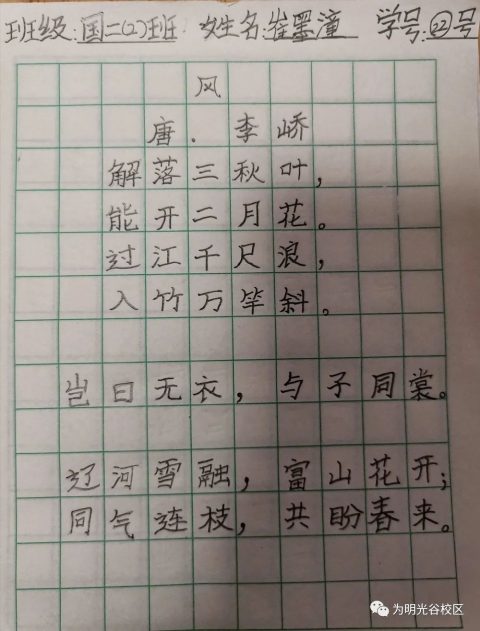 班级:国二(2)班 姓名:崔墨潼 学号:22号
风
唐.李峤
解落三秋叶,
能开二月花。
过江千尺浪,
入竹万竿斜。
岂曰无衣,与子同裳。
辽河雪融,富山花开;
同气连枝,共盼春来。
为明光谷校区